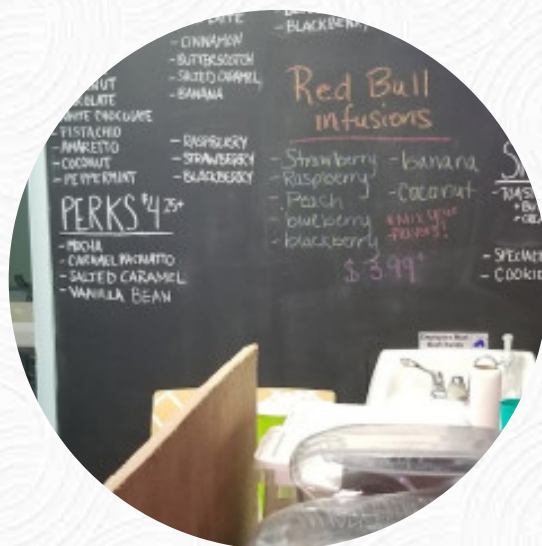 - BLACKBERRY
- CINNAMON
- BUTTERSCOTCH
- SALTED CARAMEL
- BANANA
WHITE CHOCOLATE
- PISTACHIO
- AMARETTO
- COCONUT
- PEPPERMINT
- RASPBERRY
- STRAWBERRY
- BLACKBERRY
PERKS $4.25+
- MOCHA
- CARAMEL MACHIATTO
- SALTED CARAMEL
- VANILLA BEAN
Red Bull
infusions
- Strawberry
- Raspberry
- Peach
- blueberry
- blackberry
- banana
- Coconut
* Mix your
flavors!
$3.99+
- COOKIE